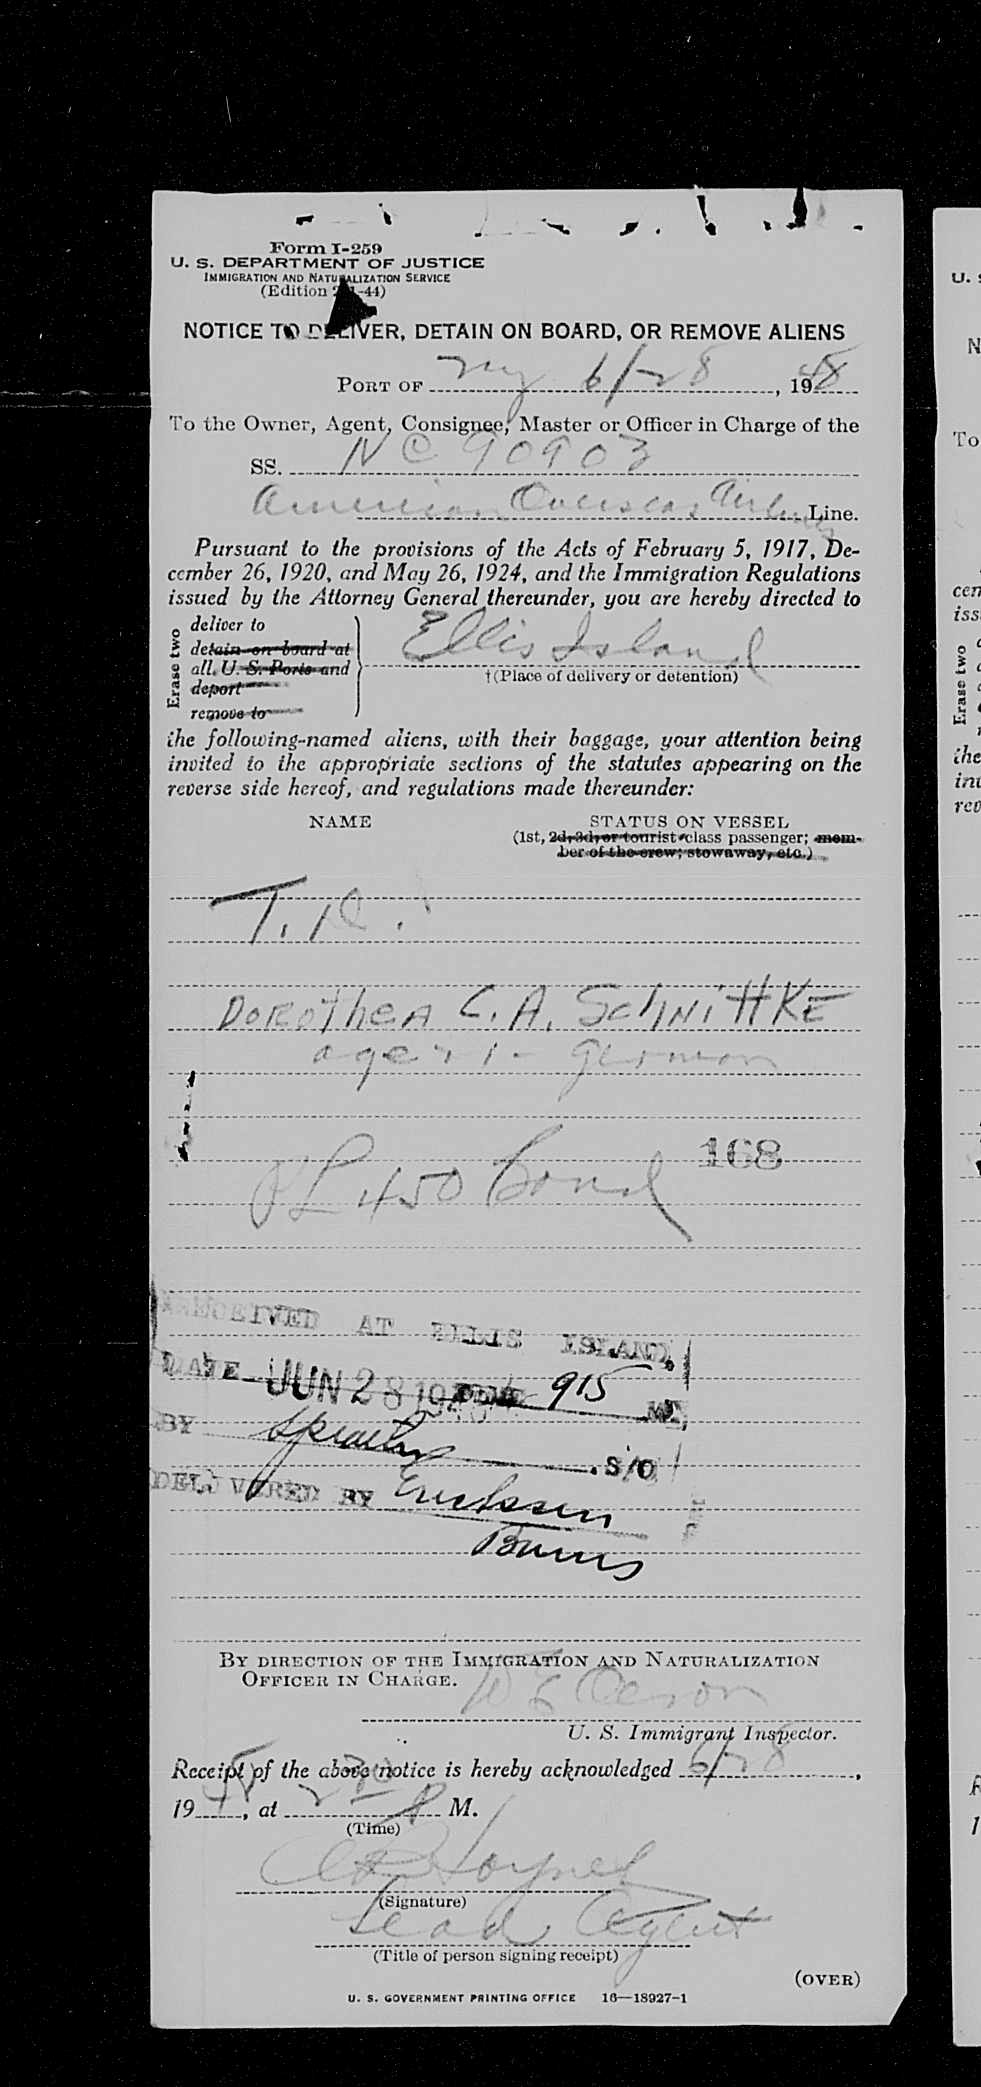 Form I-259
U. S. DEPARTMENT OF JUSTICE
IMMIGRATION AND NATURALIZATION SERVICE
(Edition -44)
NOTICE TO DELIVER, DETAIN ON BOARD, OR REMOVE ALIENS
PORT OF NY 6/28, 1948
To the Owner, Agent, Consignee, Master or Officer in Charge of the
SS. NC 90903
American Overseas Airlines Line.
Pursuant to the provisions of the Acts of February 5, 1917, De-
cember 26, 1920, and May 26, 1924, and the Immigration Regulations
issued by the Attorney General thereunder, you are hereby directed to
Erase two
deliver to
detain on board at
all U. S. Ports and
deport
remove to
Ellis Island
†(Place of delivery or detention)
the following-named aliens, with their baggage, your attention being
invited to the appropriate sections of the statutes appearing on the
reverse side hereof, and regulations made thereunder:
NAME STATUS ON VESSEL
(1st, 2d, 3d, or tourist class passenger; mem-
ber of the crew; stowaway, etc.)
T.
DOROTHEA C. A. SCHNITTKE
age German
450 Bond
168
RECEIVED AT ELLIS ISLAND,
DATE JUN 28 1948 TIME 915 M.
BY S/O
DELIVERED BY Erickson
Burns
BY DIRECTION OF THE IMMIGRATION AND NATURALIZATION
OFFICER IN CHARGE.
U. S. Immigrant Inspector.
Receipt of the above notice is hereby acknowledged 6/28,
1948, at 2 30 P M.
(Time)
(Signature)
Lead Agent
(Title of person signing receipt)
(OVER)
U. S. GOVERNMENT PRINTING OFFICE 16—18927-1
U. S
N
To
cem
iss
Erase two
the
inv
rev